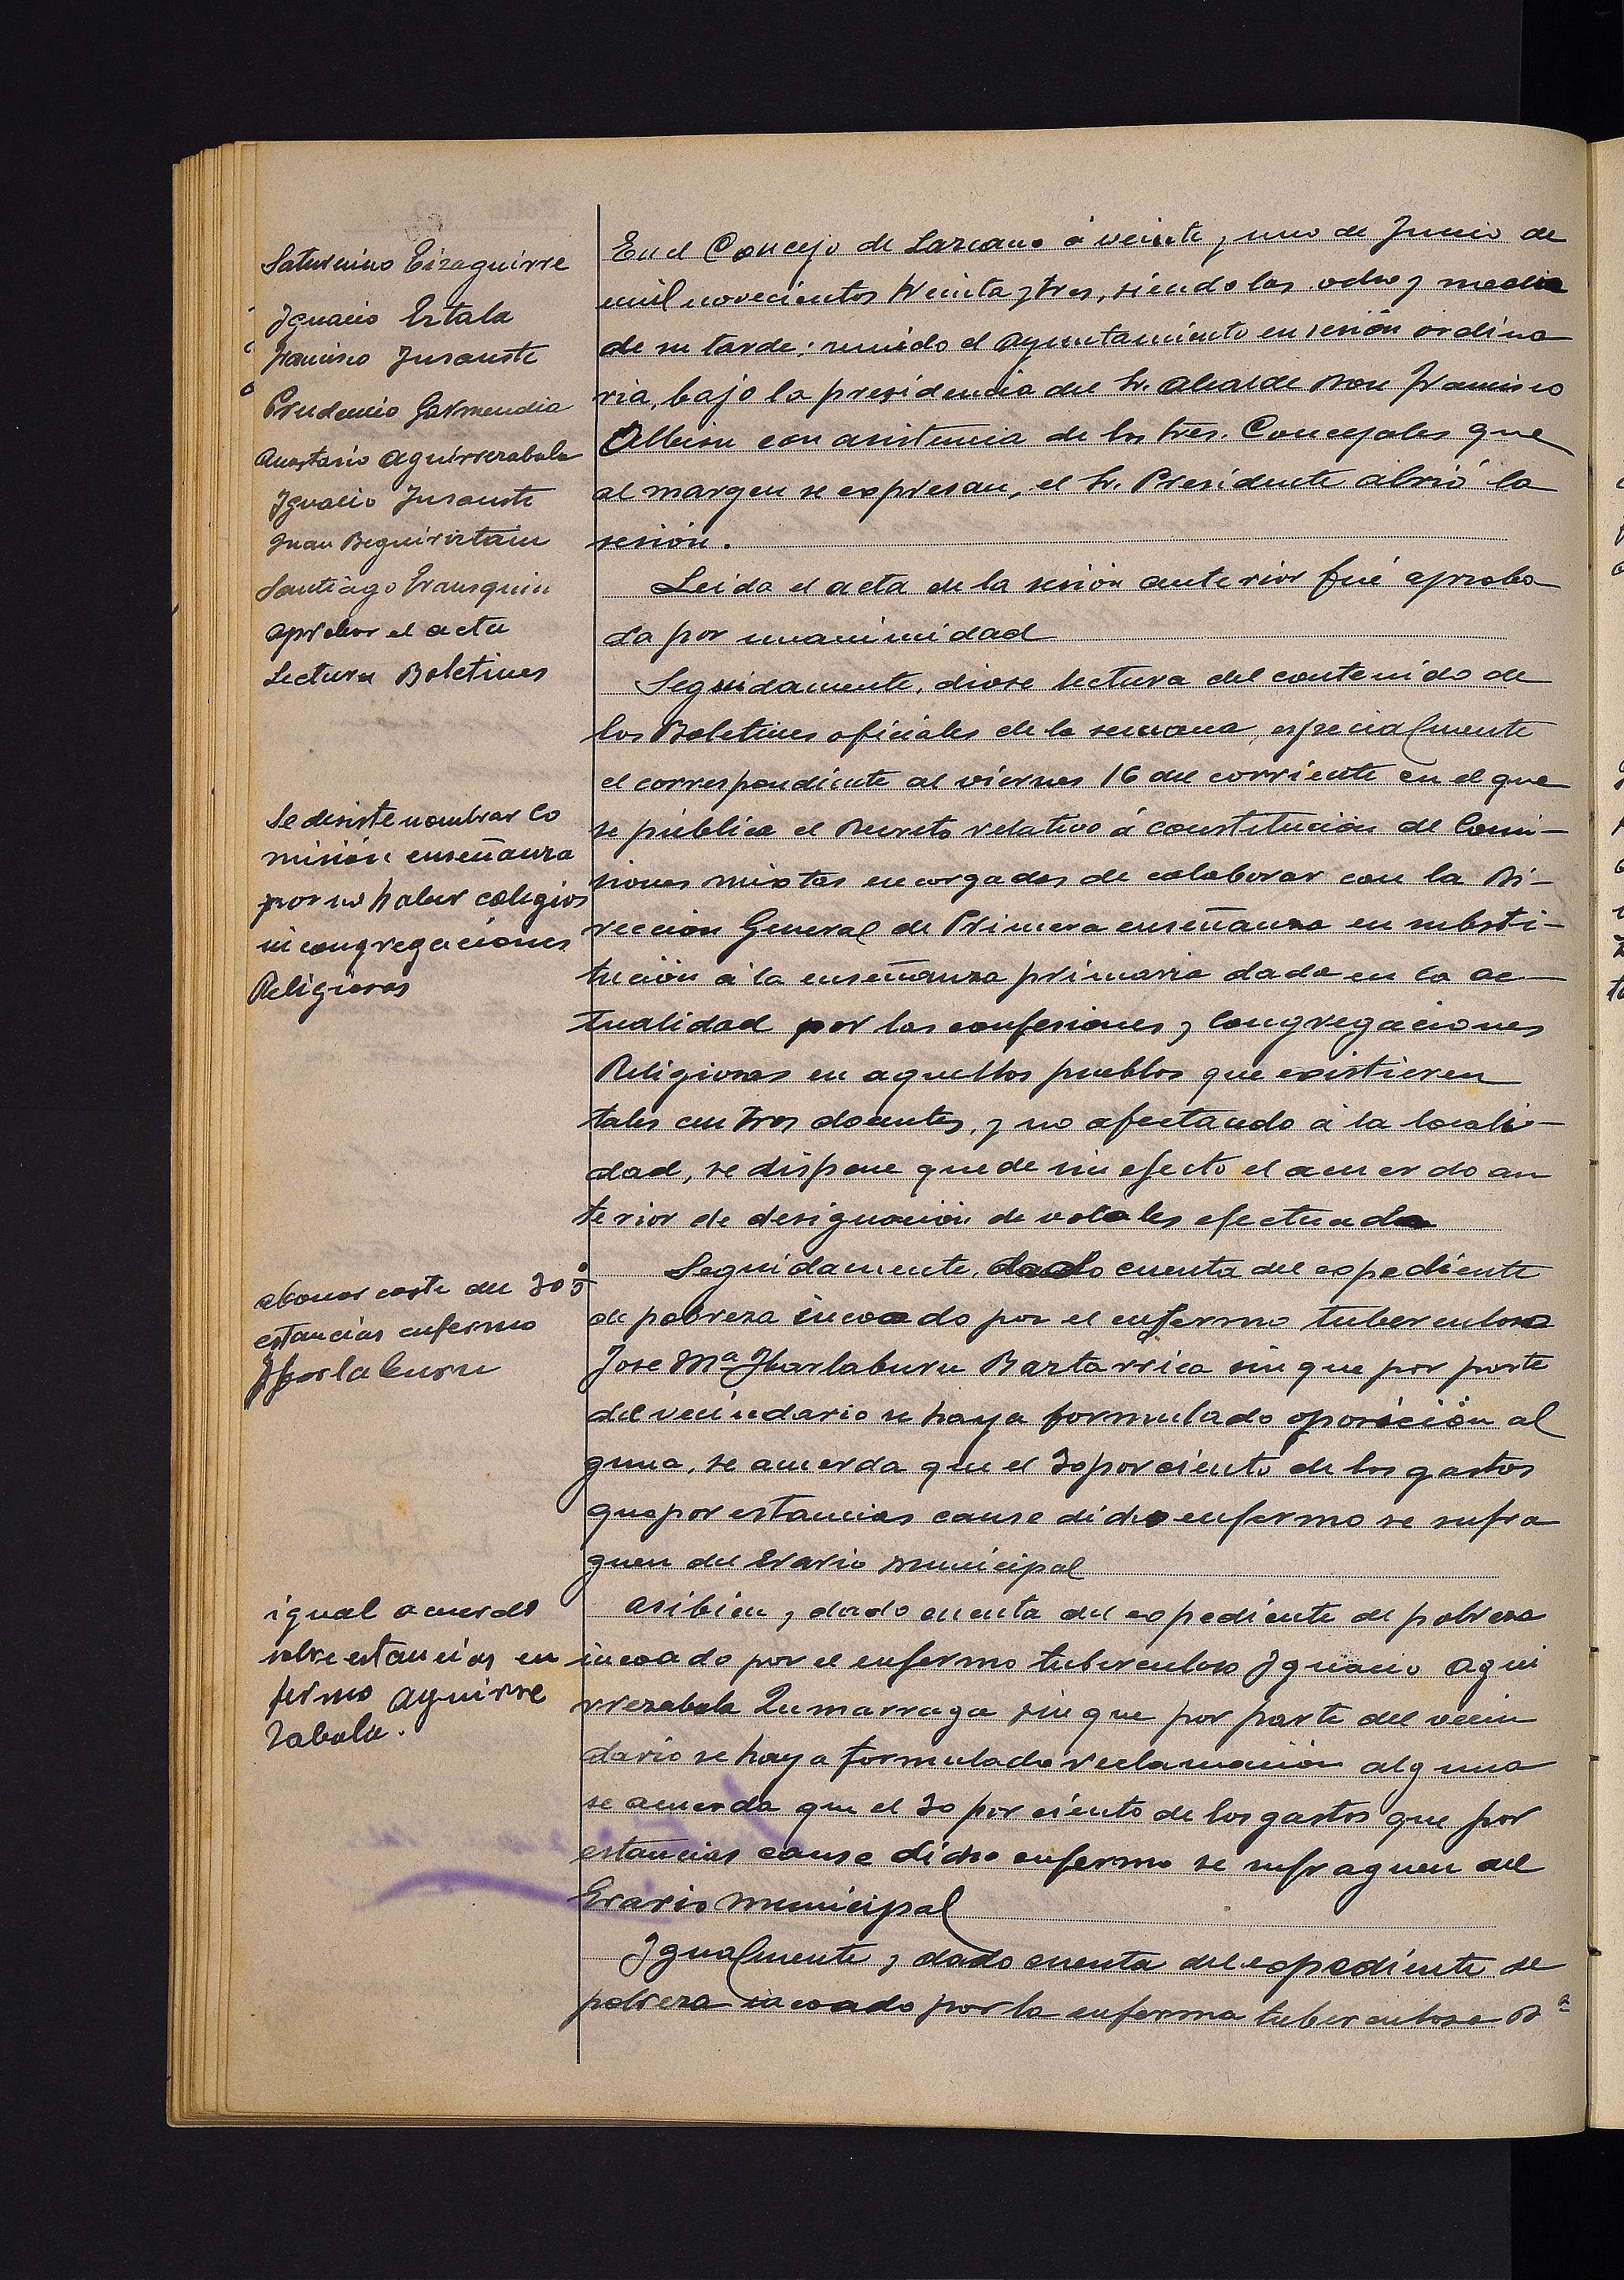 Saturnino Eizaguirre
Ignacio Ertala
Francisco Insausti
Prudencio Garmendia
Anastasio Aguirrezabala
Ignacio Insausti
Juan Beguiristain
Santiago Erausquin
aprobar el acta
Lectura Boletines
Se desiste nombrar Co
misión enseñanza
por no haber colegios
ni congregaciones
Religiosas
abonar coste del 30 %
estancias enfermo
Ibarlaburu
igual acuerdo
sobre estancias en
fermo Aguirre
zabala.
En el Concejo de Lazcano á veinte y uno de Junio de
mil novecientos treinta y tres, siendo las ocho y media
de su tarde; reunido el Ayuntamiento en sesión ordina
ria, bajo la presidencia del Sr. Alcalde Don Francisco
Albisu con asistencia de los Sres. Concejales que
al margen se expresan, el Sr. Presidente abrió la
sesión.
Leida el acta de la sesión anterior fué aproba
da por unanimidad
Seguidamente, diose lectura del contenido de
los Boletines oficiales de la semana, especialmente
el correspondiente al viernes 16 del corriente en el que
se publica el Decreto relativo á constitución de Comi-
siones mixtas encargadas de colaborar con la Di-
rección General de Primera enseñanza en substi-
tución á la enseñanza primaria dada en la ac-
tualidad por las confesiones y Congregaciones
Religiosas en aquellos pueblos que existieren
tales centros docentes, y no afectando á la locali-
dad, se dispone quede sin efecto el acuerdo an
terior de designación de vocales efectuada
Seguidamente, dado cuenta del expediente
de pobreza incoado por el enfermo tuberculoso
Jose Mª Ibarlaburu Baztarrica sin que por parte
del vecindario se haya formulado oposición al
guna, se acuerda que el 30 por ciento de los gastos
que por estancias cause dicho enfermo se sufra
guen del Erario municipal
Asibien, dado cuenta del expediente de pobreza
incoado por el enfermo tuberculoso Ignacio Agui
rrezabala Zumarraga sin que por parte del vecin
dario se haya formulado reclamación alguna
se acuerda que el 30 por ciento de los gastos que por
estancias cause dicho enfermo se sufraguen del
Erario municipal
Igualmente, dado cuenta del expediente de
pobreza incoado por la enferma tuberculosa Dª